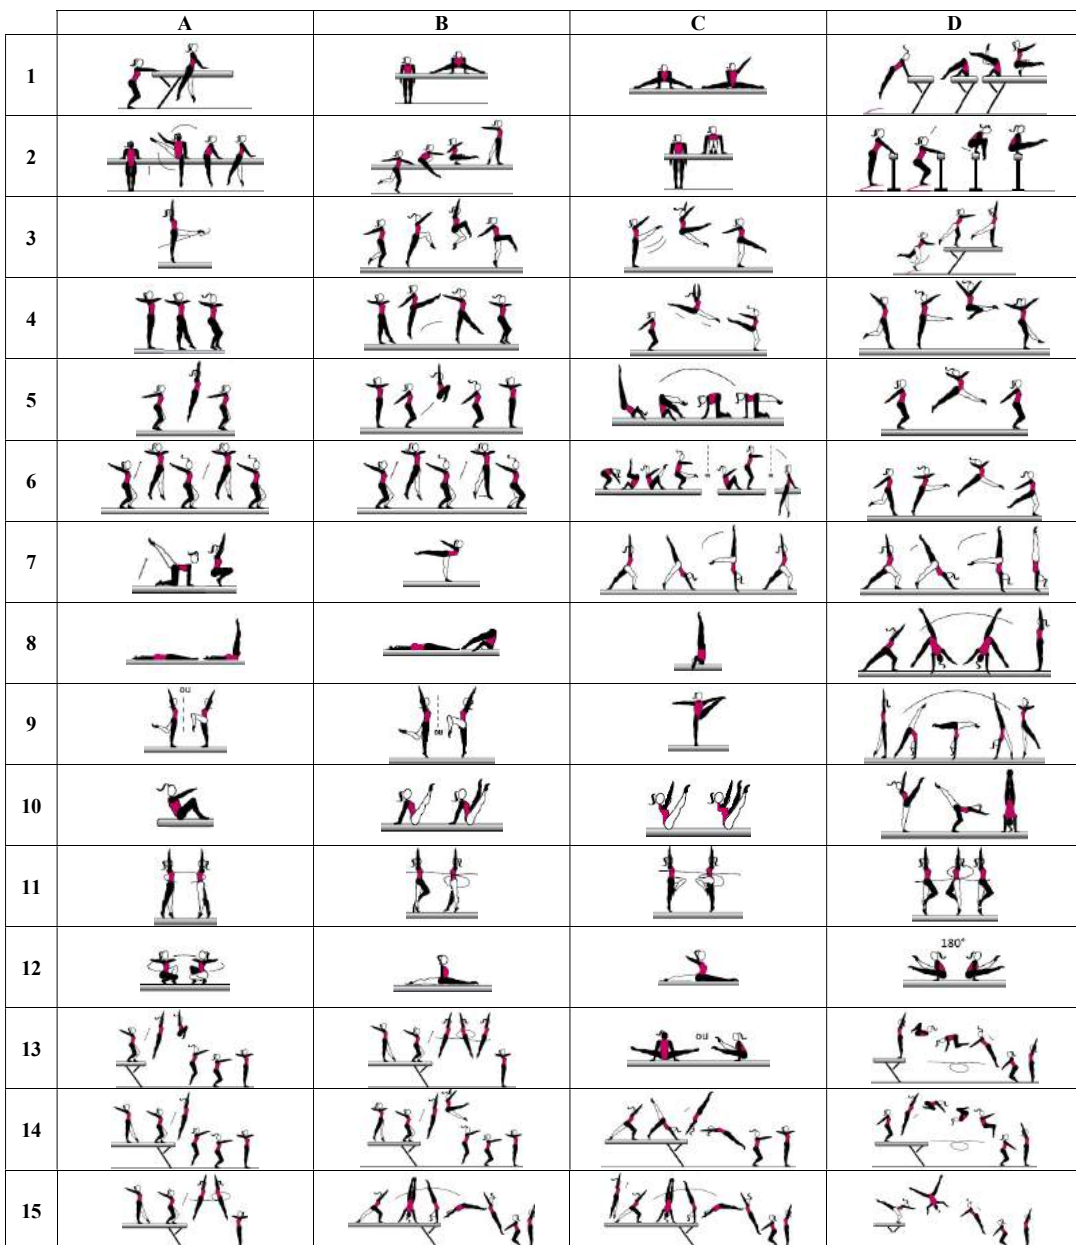 A B C D
1
2
3
4
5
6
7
8
9 ou ou
10
11
12 180°
13 ou
14
15